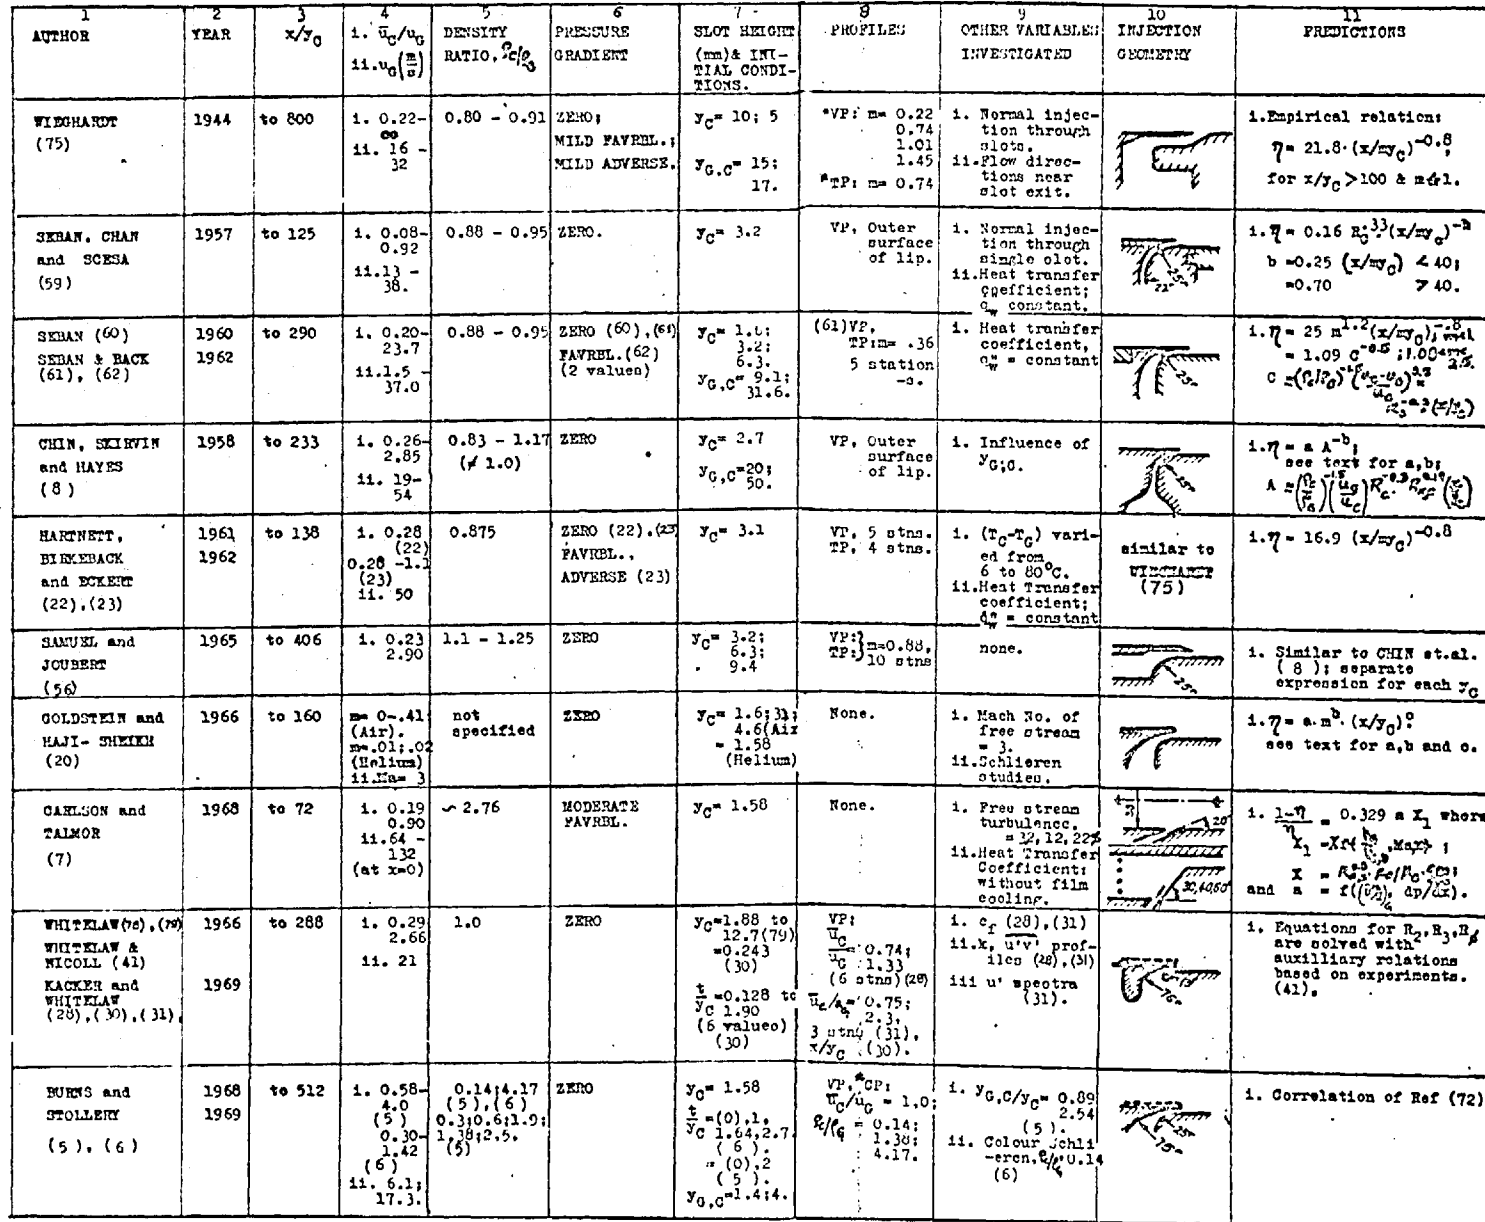 1 2 3 4 5 6 7 8 9 10 11
AUTHOR
YEAR
x/y_C
i. ū_C/u_G
ii.u_G(m/s)
DENSITY
RATIO,
PRESSURE
GRADIENT
SLOT HEIGHT
(mm)& INI-
TIAL CONDI-
TIONS.
PROFILES
OTHER VARIABLES
INVESTIGATED
INJECTION
GEOMETRY
PREDICTIONS
WIEGHARDT
(75)
1944
to 800
i. 0.22-
∞
ii. 16 -
32
0.80 - 0.91
ZERO;
MILD FAVRBL.;
MILD ADVERSE.
y_C= 10; 5
y_G,C= 15;
17.
*VP: m= 0.22
0.74
1.01
1.45
*TP: m= 0.74
i. Normal injec-
tion through
slots.
ii.Flow direc-
tions near
slot exit.
i.Empirical relation:
η= 21.8.(x/my_C)^-0.8,
for x/y_C >100 & m≤1.
SEBAN, CHAN
and SCESA
(59)
1957
to 125
i. 0.08-
0.92
ii.13 -
38.
0.88 - 0.95
ZERO.
y_C= 3.2
VP, Outer
surface
of lip.
i. Normal injec-
tion through
single slot.
ii.Heat transfer
coefficient;
q_w constant.
25°
i.η = 0.16 R_C^.33(x/my_C)^-b
b =0.25 (x/my_C) < 40;
=0.70 > 40.
SEBAN (60)
SEBAN & BACK
(61), (62)
1960
1962
to 290
i. 0.20-
23.7
ii.1.5 -
37.0
0.88 - 0.95
ZERO (60),(61)
FAVRBL.(62)
(2 values)
y_C= 1.6;
3.2;
6.3.
y_G,C= 9.1;
31.6.
(61)VP,
TP:m= .36
5 station
-s.
i. Heat transfer
coefficient,
q"_w = constant
25°
i.η = 25 m^1.2(x/my_C)^-.8
= 1.09 C^-0.5
CHIN, SKIRVIN
and HAYES
(8)
1958
to 233
i. 0.26-
2.85
ii. 19-
54
0.83 - 1.17
(≠ 1.0)
ZERO
y_C= 2.7
y_G,C=20;
50.
VP, Outer
surface
of lip.
i. Influence of
y_G,C.
25°
i.η = a A^-b;
see text for a,b;
HARTNETT,
BIRKEBACK
and ECKERT
(22),(23)
1961
1962
to 138
i. 0.28
(22)
0.28 -1.1
(23)
ii. 50
0.875
ZERO (22),(23)
FAVRBL.,
ADVERSE (23)
y_C= 3.1
VP, 5 stns.
TP, 4 stns.
i. (T_C-T_G) vari-
ed from
6 to 80°C.
ii.Heat Transfer
coefficient;
q"_w = constant
similar to
WIEGHARDT
(75)
i.η= 16.9 (x/my_C)^-0.8
SAMUEL and
JOUBERT
(56)
1965
to 406
i. 0.23
2.90
1.1 - 1.25
ZERO
y_C= 3.2;
6.3;
9.4
VP:}m=0.88,
TP:}10 stns
none.
25°
i. Similar to CHIN et.al.
(8); separate
expression for each y_C
GOLDSTEIN and
HAJI- SHEIKH
(20)
1966
to 160
m= 0-.41
(Air).
m=.01;.02
(Helium)
ii.Ma= 3
not
specified
ZERO
y_C= 1.6;31;
4.6(Air
= 1.58
(Helium)
None.
i. Mach No. of
free stream
= 3.
ii.Schlieren
studies.
i.η= a.m^b.(x/y_C)^c
see text for a,b and c.
CARLSON and
TALMOR
(7)
1968
to 72
i. 0.19
0.90
ii.64 -
132
(at x=0)
~ 2.76
MODERATE
FAVRBL.
y_C= 1.58
None.
i. Free stream
turbulence.
ii.Heat Transfer
Coefficient;
without film
cooling.
20°
30,40,60°
i. (1-η)/η = 0.329 a X_1 where
and a = f( , dp/dx).
WHITELAW(78),(79)
WHITELAW &
NICOLL (41)
KACKER and
WHITELAW
(28),(30),(31).
1966
1969
to 288
i. 0.29
2.66
ii. 21
1.0
ZERO
y_C=1.88 to
12.7(79)
=0.243
(30)
t/y_C =0.128 to
1.90
(6 values)
(30)
VP:
ū_C/u_G = 0.74;
1.33
(6 stns)(28)
= 0.75;
2.3,
3 stns (31),
x/y_C (30).
i. c_f (28),(31)
ii.k, u'v' prof-
iles (28),(31)
iii u' spectra
(31).
i. Equations for R_2,R_3,
are solved with
auxilliary relations
based on experiments.
(41).
BURNS and
STOLLERY
(5), (6)
1968
1969
to 512
i. 0.58-
4.0
(5)
0.30-
1.42
(6)
ii. 6.1;
17.3.
0.14;4.17
(5),(6)
0.3;0.6;1.9;
1.38;2.5.
(5)
ZERO
y_C= 1.58
t/y_C =(0),1,
1.64,2.7
(6).
= (0),2
(5).
y_G,C=1.4;4.
VP,*CP:
ū_C/u_G = 1.0;
= 0.14;
1.38;
4.17.
i. y_G,C/y_C= 0.89
2.54
(5).
ii. Colour Schli
-eren, 0.14
(6)
25°
i. Correlation of Ref (72)